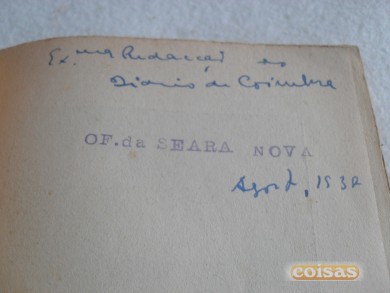 Ex.ma Redacção do
Diário de Coimbra
OF. da SEARA NOVA
Agost., 193
coisas